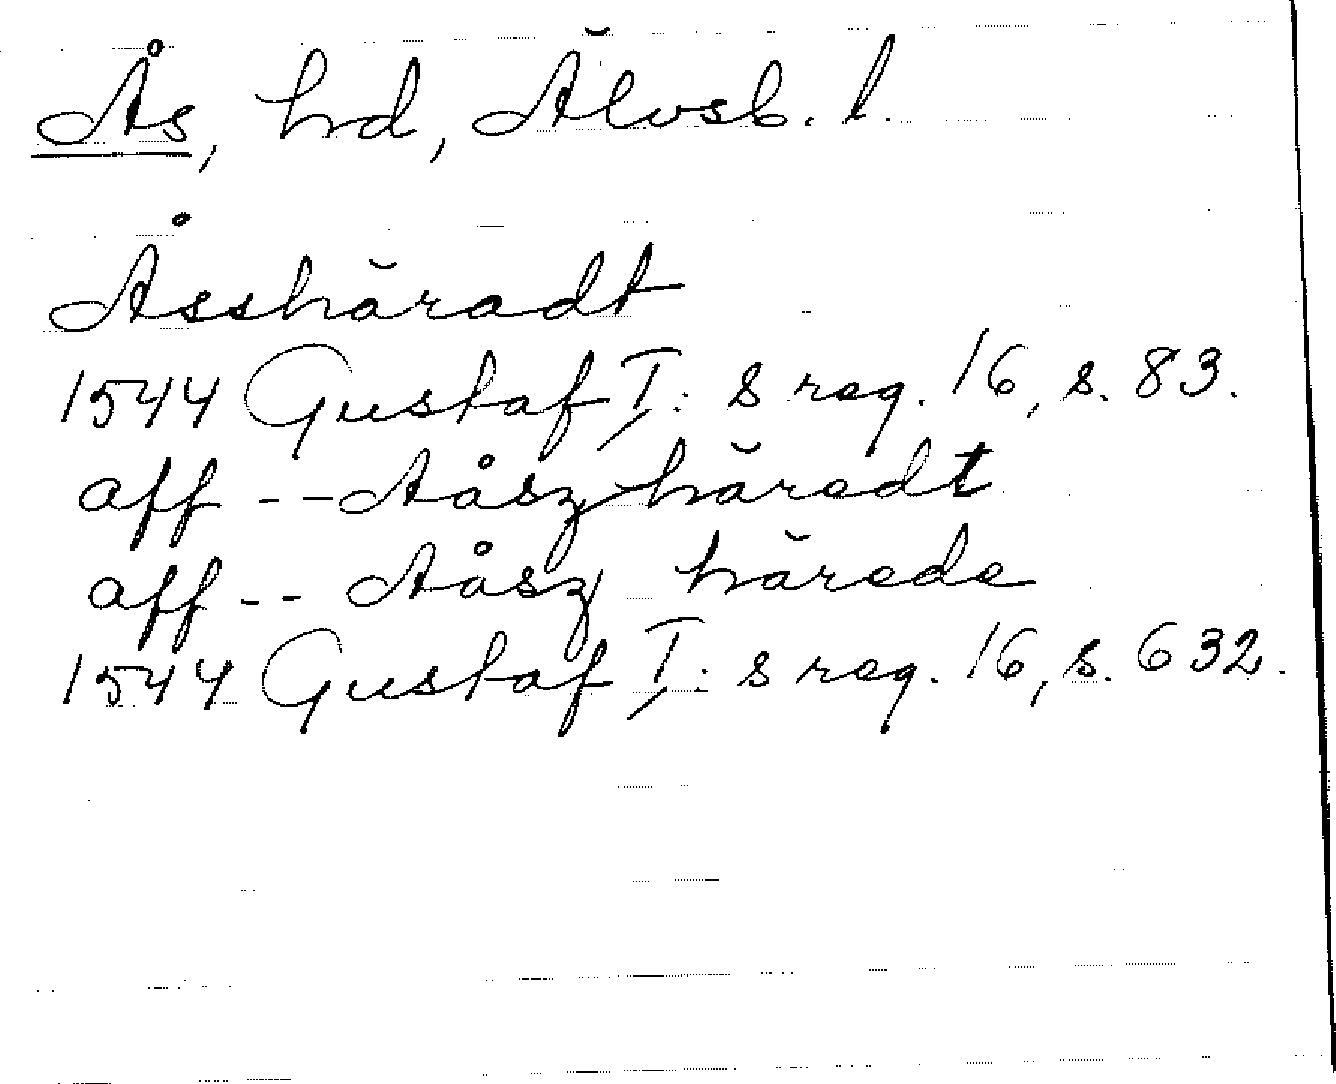 Ås, hd, Älvsb. l.
Åsshäradt
1544 Gustaf I: s reg. 16, s. 83.
aff -- Aåsz häredt
aff -- Aåsz härede
1544 Gustaf I: s reg. 16, s. 632.